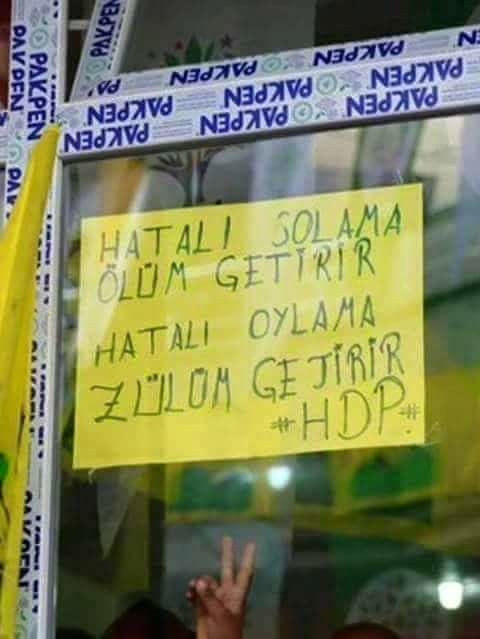 PAKPEN
PAKPEN
PAKPEN PAKPEN PAKPEN
PAKPEN PAKPEN PAKPEN PAKPEN
HATALI SOLAMA
ÖLÜM GETİRİR
HATALI OYLAMA
ZÜLÜM GETİRİR
#HDP#